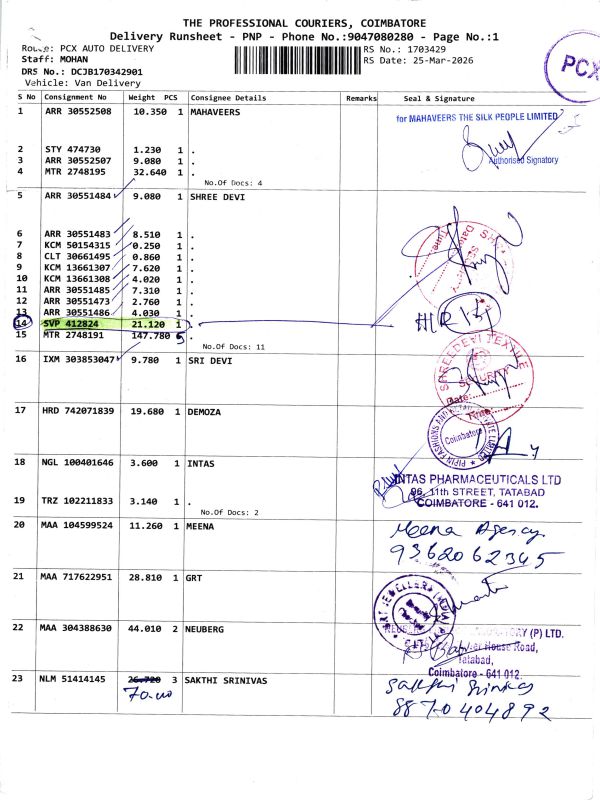 THE PROFESSIONAL COURIERS, COIMBATORE
Delivery Runsheet - PNP - Phone No.:9047080280 - Page No.:1
Route: PCX AUTO DELIVERY
RS No.: 1703429
Staff: MOHAN
RS Date: 25-Mar-2026
DRS No.: DCJB170342901
Vehicle: Van Delivery
PCX
S No Consignment No Weight PCS Consignee Details Remarks Seal & Signature
1 ARR 30552508 10.350 1 MAHAVEERS
for MAHAVEERS THE SILK PEOPLE LIMITED
Authorised Signatory
2 STY 474730 1.230 1 .
3 ARR 30552507 9.080 1 .
4 MTR 2748195 32.640 1 .
No.Of Docs: 4
5 ARR 30551484 9.080 1 SHREE DEVI
6 ARR 30551483 8.510 1 .
7 KCM 50154315 0.250 1 .
8 CLT 30661495 0.860 1 .
9 KCM 13661307 7.620 1 .
10 KCM 13661308 4.020 1 .
11 ARR 30551485 7.310 1 .
12 ARR 30551473 2.760 1 .
13 ARR 30551486 4.030 1 .
14 SVP 412824 21.120 1 .
15 MTR 2748191 147.780 5 .
No.Of Docs: 11
16 IXM 303853047 9.780 1 SRI DEVI
SHREEDEVI TEXTILE
SECURITY
Date:
Time:
17 HRD 742071839 19.680 1 DEMOZA
Coimbatore
18 NGL 100401646 3.600 1 INTAS
INTAS PHARMACEUTICALS LTD
96, 11th STREET, TATABAD
COIMBATORE - 641 012.
19 TRZ 102211833 3.140 1 .
No.Of Docs: 2
20 MAA 104599524 11.260 1 MEENA
Meena Agency
9362062345
21 MAA 717622951 28.810 1 GRT
22 MAA 304388630 44.010 2 NEUBERG
(P) LTD.
House Road,
Tatabad,
Coimbatore - 641 012.
23 NLM 51414145 26.720 3 SAKTHI SRINIVAS
70.00
Sakthi Srinivas
8870404892